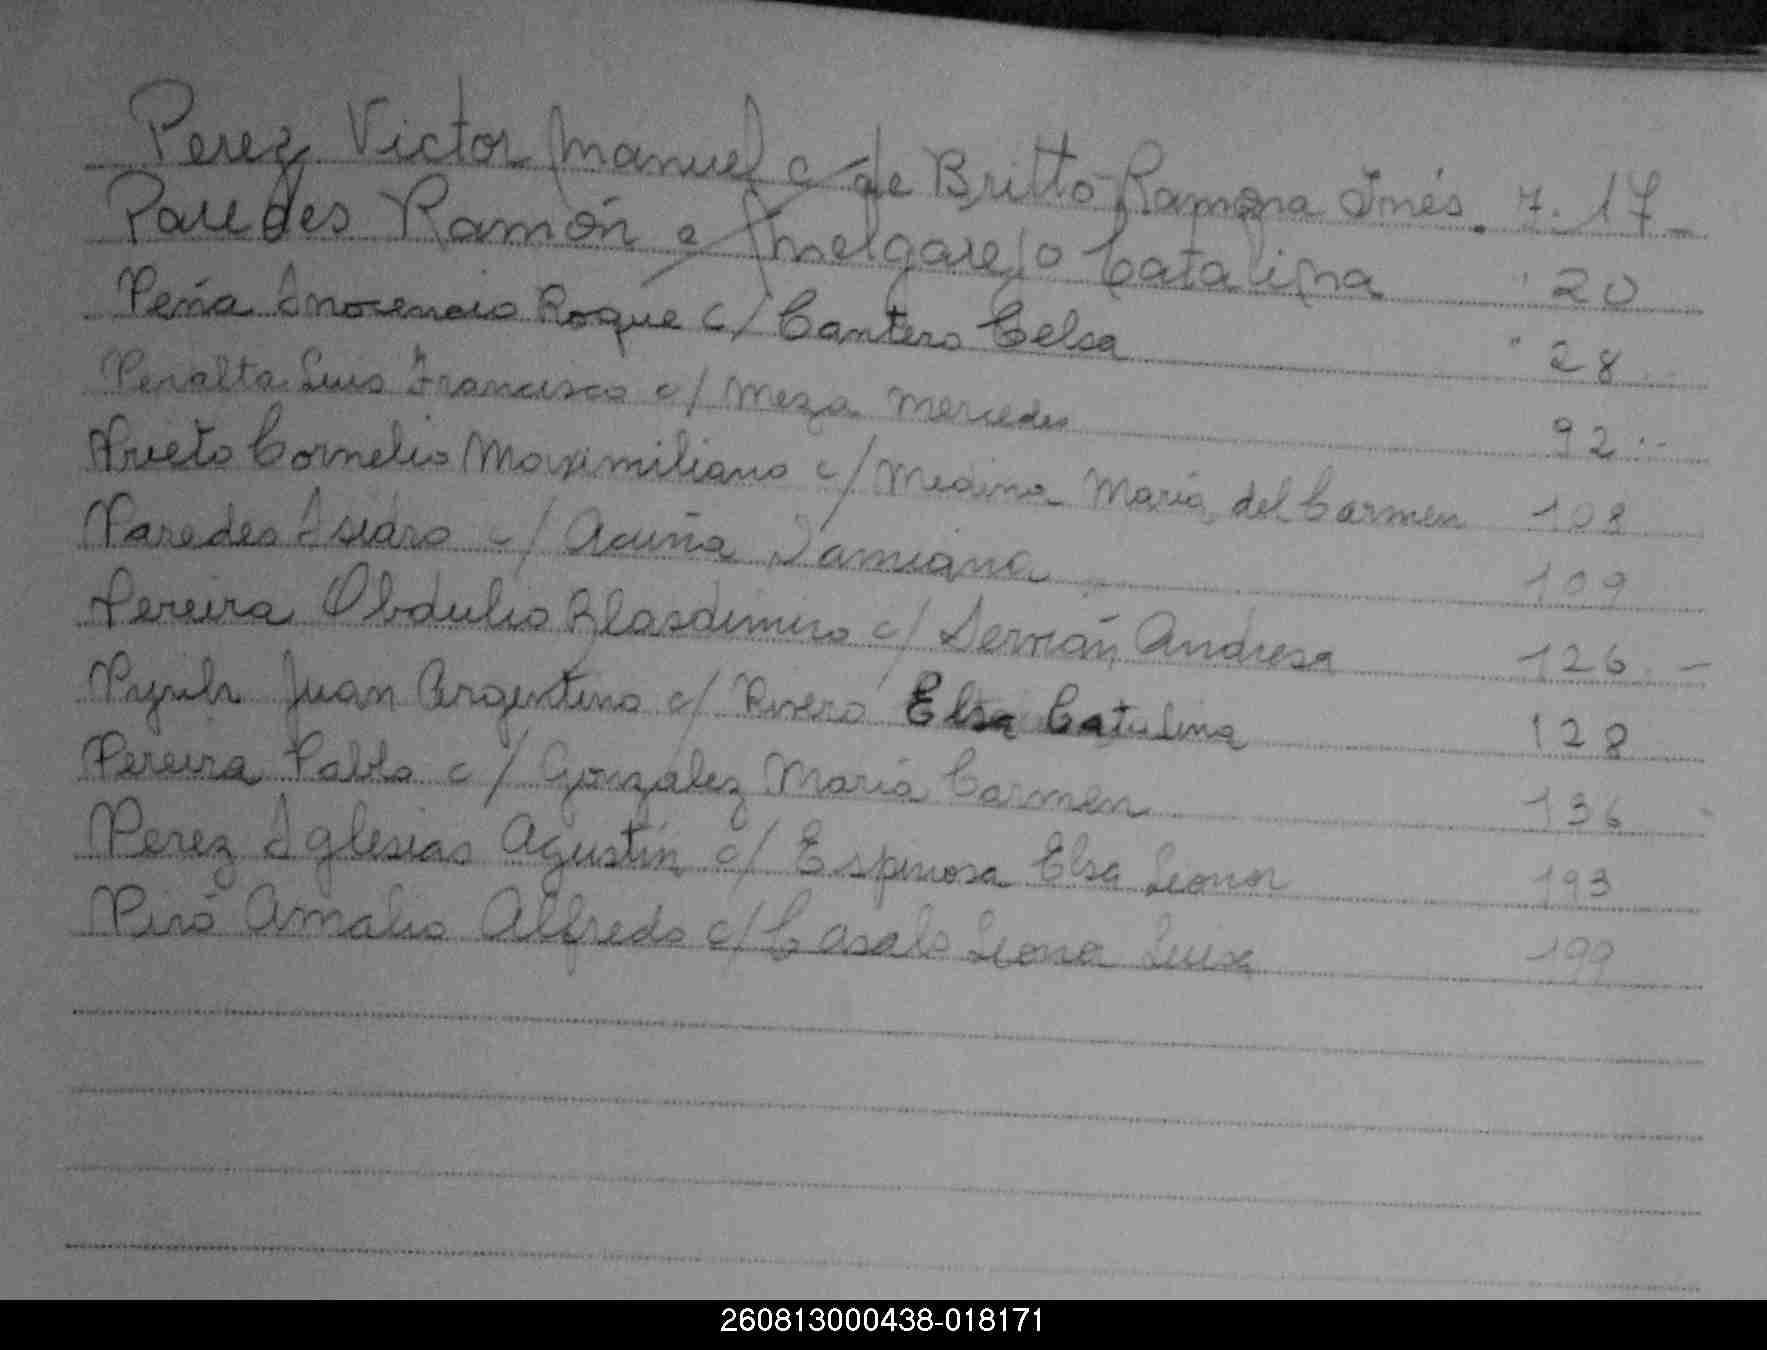 Perez Victor Manuel c/ de Britto Ramona Inés. 7. 17
Paredes Ramón c/ Melgarejo Catalina " 20
Peña Inocencio Roque c/ Cantero Celsa " 28
Peralta Luis Francisco c/ Meza Mercedes 92
Prieto Cornelio Maximiliano c/ Medina María del Carmen 108
Paredes Isidro c/ Acuña Damiana 109
Pereira Obdulio Blasdimiro c/ Andresa 126
Juan Argentino c/ Rivero Elsa Catalina 128
Pereira Pablo c/ González María Carmen 136
Perez Iglesias Agustín c/ Espinosa Elsa Leonor 193
Piró Amalio Alfredo c/ Casals 199
260813000438-018171